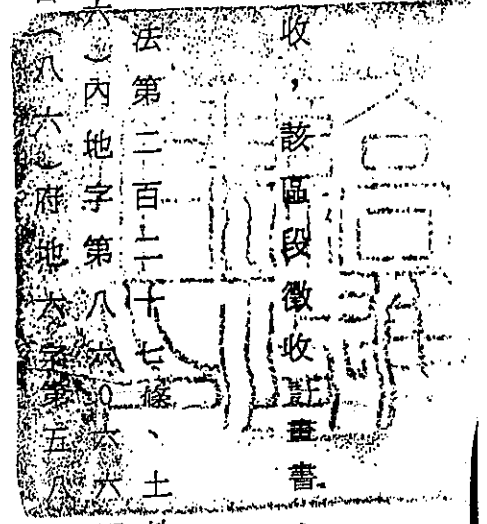 收，該區段徵收計畫書
法第二百二十七條、土
六）內地字第八六０六六
（八六）府地六字第五八